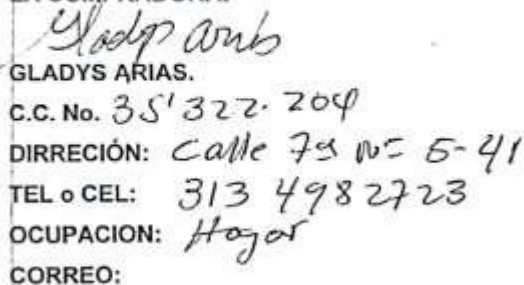 Gladys Arias
GLADYS ARIAS.
C.C. No. 35'322.204
DIRRECIÓN: Calle 79 Nº 5-41
TEL o CEL: 313 4982723
OCUPACION: Hogar
CORREO: